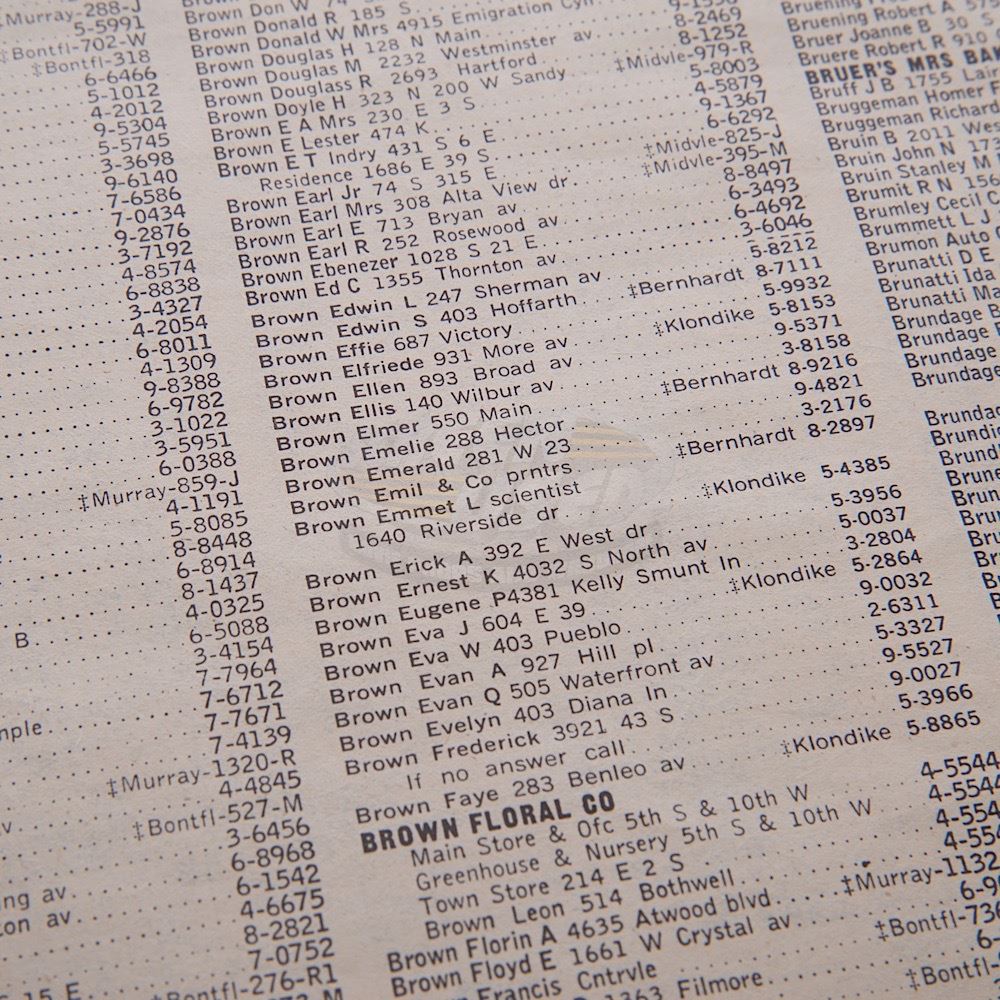 ‡Murray-288-J
5-5991
‡Bontfl-702-W
‡Bontfl-318
6-6466
5-1012
4-2012
9-5304
5-5745
3-3698
9-6140
7-6586
7-0434
9-2876
3-7192
4-8574
6-8838
3-4327
4-2054
6-8011
4-1309
9-8388
6-9782
3-1022
3-5951
6-0388
‡Murray-859-J
4-1191
5-8085
8-8448
6-8914
8-1437
4-0325
B 6-5088
3-4154
7-7964
7-6712
mple 7-7671
7-4139
‡Murray-1320-R
4-4845
‡Bontfl-527-M
3-6456
6-8968
6-1542
ing av 4-6675
ton av 8-2821
7-0752
15 E ‡Bontfl-276-R1
Brown Don W
Brown Donald R 185 S
Brown Donald W Mrs 4915 Emigration Cyn
Brown Douglas H 128 N Main
Brown Douglas M 2232 Westminster av 8-2469
Brown Douglass R 2693 Hartford 8-1252
Brown Doyle H 323 N 200 W Sandy ‡Midvle-979-R
Brown E A Mrs 230 E 3 S 5-8003
Brown E Lester 474 K 4-5879
Brown E T lndry 431 S 6 E 9-1367
Residence 1686 E 39 S 6-6292
Brown Earl Jr 74 S 315 E ‡Midvle-825-J
Brown Earl Mrs 308 Alta View dr ‡Midvle-395-M
Brown Earl E 713 Bryan av 8-8497
Brown Earl R 252 Rosewood av 6-3493
Brown Ebenezer 1028 S 21 E 6-4692
Brown Ed C 1355 Thornton av 3-6046
Brown Edwin L 247 Sherman av 5-8212
Brown Edwin S 403 Hoffarth ‡Bernhardt 8-7111
Brown Effie 687 Victory 5-9932
Brown Elfriede 931 More av ‡Klondike 5-8153
Brown Ellen 893 Broad av 9-5371
Brown Ellis 140 Wilbur av 3-8158
Brown Elmer 550 Main ‡Bernhardt 8-9216
Brown Emelie 288 Hector 9-4821
Brown Emerald 281 W 23 3-2176
Brown Emil & Co prntrs ‡Bernhardt 8-2897
Brown Emmet L scientist
1640 Riverside dr ‡Klondike 5-4385
Brown Erick A 392 E West dr 5-3956
Brown Ernest K 4032 S North av 5-0037
Brown Eugene P4381 Kelly Smunt ln 3-2804
Brown Eva J 604 E 39 ‡Klondike 5-2864
Brown Eva W 403 Pueblo 9-0032
Brown Evan A 927 Hill pl 2-6311
Brown Evan Q 505 Waterfront av 5-3327
Brown Evelyn 403 Diana ln 9-5527
Brown Frederick 3921 43 S 9-0027
If no answer call 5-3966
Brown Faye 283 Benleo av ‡Klondike 5-8865
BROWN FLORAL CO
Main Store & Ofc 5th S & 10th W 4-5544
Greenhouse & Nursery 5th S & 10th W 4-5544
Town Store 214 E 2 S 4-554
Brown Leon 514 Bothwell 4-55
Brown Florin A 4635 Atwood blvd ‡Murray-1132
Brown Floyd E 1661 W Crystal av 6-9
Francis Cntrvle ‡Bontfl-736
1363 Filmore 6-
‡Bontfl-
Bruening Robert A 575
Bruer Joanne B 30 S
Bruere Robert R 910
BRUER'S MRS BA
Bruff J B 1755 Lair
Bruggeman Homer F
Bruggeman Richard
Bruin B 2011 Wes
Bruin John N 173
Bruin Stanley M
Brumit R N 156
Brumley Cecil C
Brummett L J
Brumon Auto
Brunatti D E
Brunatti Ida
Brunatti Ma
Brundage B
Brundage
Brundage
Brundage
Brundag
Brundi
Brund
Brune
Brun
Brun
Bru